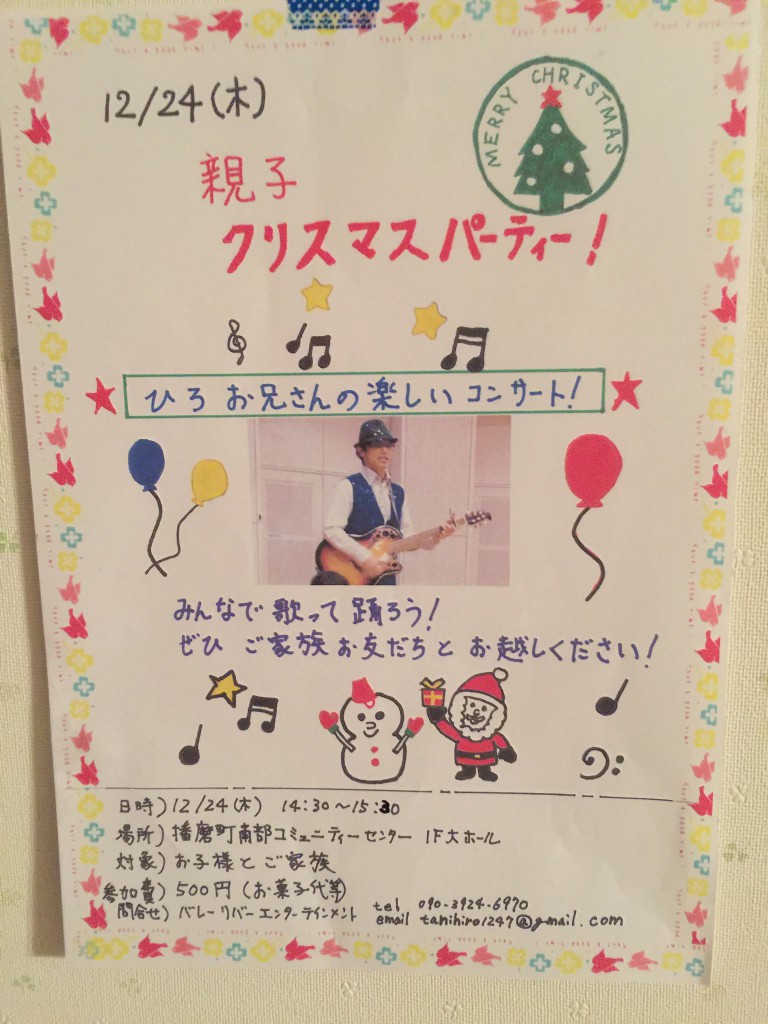 12/24(木)
MERRY CHRISTMAS
親子
クリスマスパーティー!
ひろ お兄さんの楽しい コンサート!
みんなで 歌って 踊ろう!
ぜひ ご家族 お友だちと お越しください!
日時) 12/24(木) 14:30~15:30
場所) 播磨町南部コミュニティーセンター 1F大ホール
対象) お子様と ご家族
参加費) 500円 (お菓子代等)
問合せ) バレーリバーエンターテインメント tel 090-3924-6970
email tanihiro1247@gmail.com